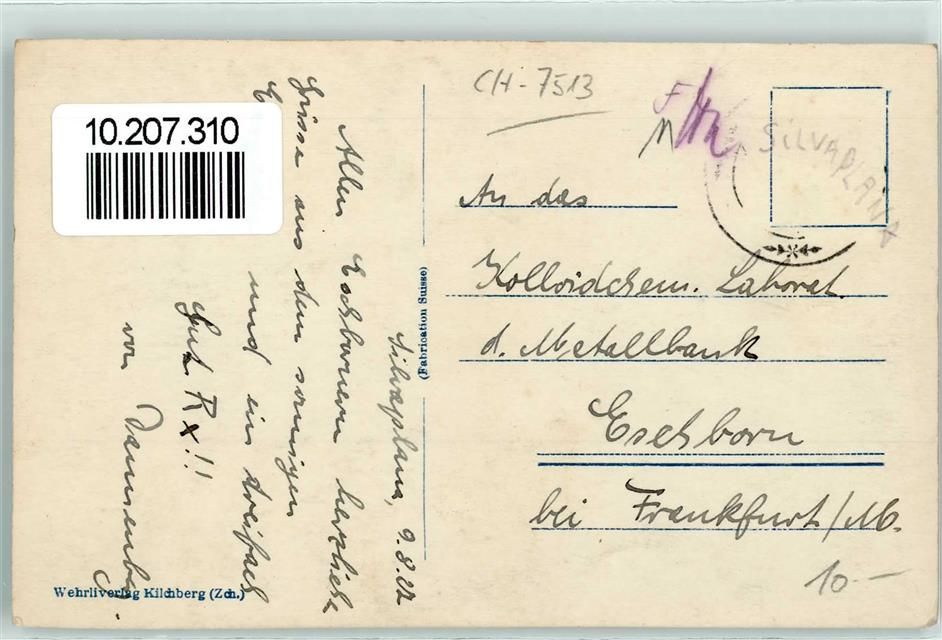 10.207.310
CH-7513
SiLVAPLAiNA
Silvaplana, 9.8.22
Allen Eschbornern herzliche
Grüsse aus dem sonnigen
und ein dreifach
Gut Rx!!
von
An das
Kolloidchem. Laborat.
d. Metallbank
Eschborn
bei Frankfurt/M.
(Fabrication Suisse)
Wehrliverlag Kilchberg (Zch.)
10.-